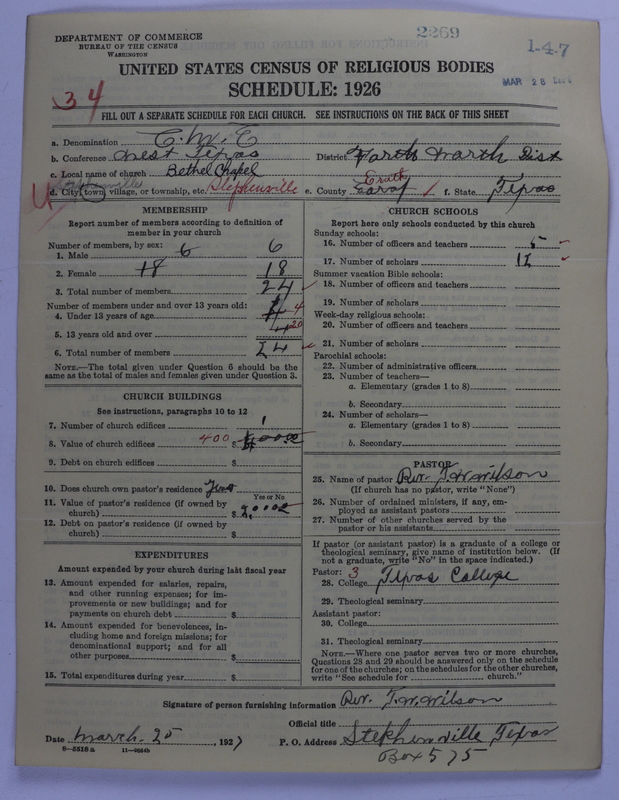 2269
DEPARTMENT OF COMMERCE
BUREAU OF THE CENSUS
WASHINGTON
1-4-7
MAR 28
UNITED STATES CENSUS OF RELIGIOUS BODIES
SCHEDULE: 1926
34
FILL OUT A SEPARATE SCHEDULE FOR EACH CHURCH. SEE INSTRUCTIONS ON THE BACK OF THIS SHEET
a. Denomination C. M. E
b. Conference West Texas District Forth Worth Dist
c. Local name of church Bethel Chapel
d. City, town, village, or township, etc. Stephenville e. County Erath f. State Texas
MEMBERSHIP
Report number of members according to definition of
member in your church
Number of members, by sex:
1. Male 6 6
2. Female 18 18
3. Total number of members 24
Number of members under and over 13 years old:
4. Under 13 years of age 4
5. 13 years old and over 20
6. Total number of members 24
NOTE.—The total given under Question 6 should be the
same as the total of males and females given under Question 3.
CHURCH BUILDINGS
See instructions, paragraphs 10 to 12
7. Number of church edifices 1
8. Value of church edifices 400 $
9. Debt on church edifices $
10. Does church own pastor's residence
Yes or No
11. Value of pastor's residence (if owned by
church) $
12. Debt on pastor's residence (if owned by
church) $
EXPENDITURES
Amount expended by your church during last fiscal year
13. Amount expended for salaries, repairs,
and other running expenses; for im-
provements or new buildings; and for
payments on church debt $
14. Amount expended for benevolences, in-
cluding home and foreign missions; for
denominational support; and for all
other purposes $
15. Total expenditures during year $
CHURCH SCHOOLS
Report here only schools conducted by this church
Sunday schools:
16. Number of officers and teachers 5
17. Number of scholars 12
Summer vacation Bible schools:
18. Number of officers and teachers
19. Number of scholars
Week-day religious schools:
20. Number of officers and teachers
21. Number of scholars
Parochial schools:
22. Number of administrative officers
23. Number of teachers—
a. Elementary (grades 1 to 8)
b. Secondary
24. Number of scholars—
a. Elementary (grades 1 to 8)
b. Secondary
PASTOR
25. Name of pastor Rev. T. W. Wilson
(If church has no pastor, write "None")
26. Number of ordained ministers, if any, em-
ployed as assistant pastors
27. Number of other churches served by the
pastor or his assistants
If pastor (or assistant pastor) is a graduate of a college or
theological seminary, give name of institution below. (If
not a graduate, write "No" in the space indicated.)
Pastor: 3
28. College Texas College
29. Theological seminary
Assistant pastor:
30. College
31. Theological seminary
NOTE.—Where one pastor serves two or more churches,
Questions 28 and 29 should be answered only on the schedule
for one of the churches; on the schedules for the other churches,
write "See schedule for church."
Signature of person furnishing information Rev. T. W. Wilson
Official title
Date March 25, 1927 P. O. Address Stephenville Texas
8—5518a
Box 575